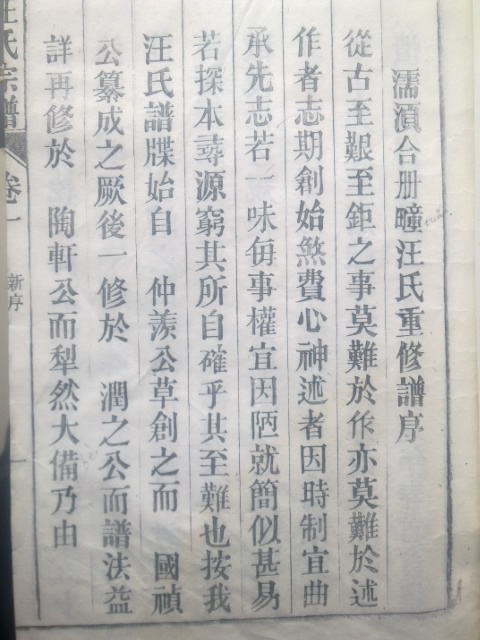 濡湏合册疃汪氏重修譜序
從古至艱至鉅之事莫難於作亦莫難於述
作者志期創始煞費心神述者因時制宜曲
承先志若一味每事權宜因陋就簡似甚易
若探本尋源窮其所自確乎其至難也按我
汪氏譜牒始自 仲羨公草創之而 國禎
公纂成之厥後一修於 潤之公而譜法益
詳再修於 陶軒公而犁然大備乃由
汪氏宗譜 卷一 新序